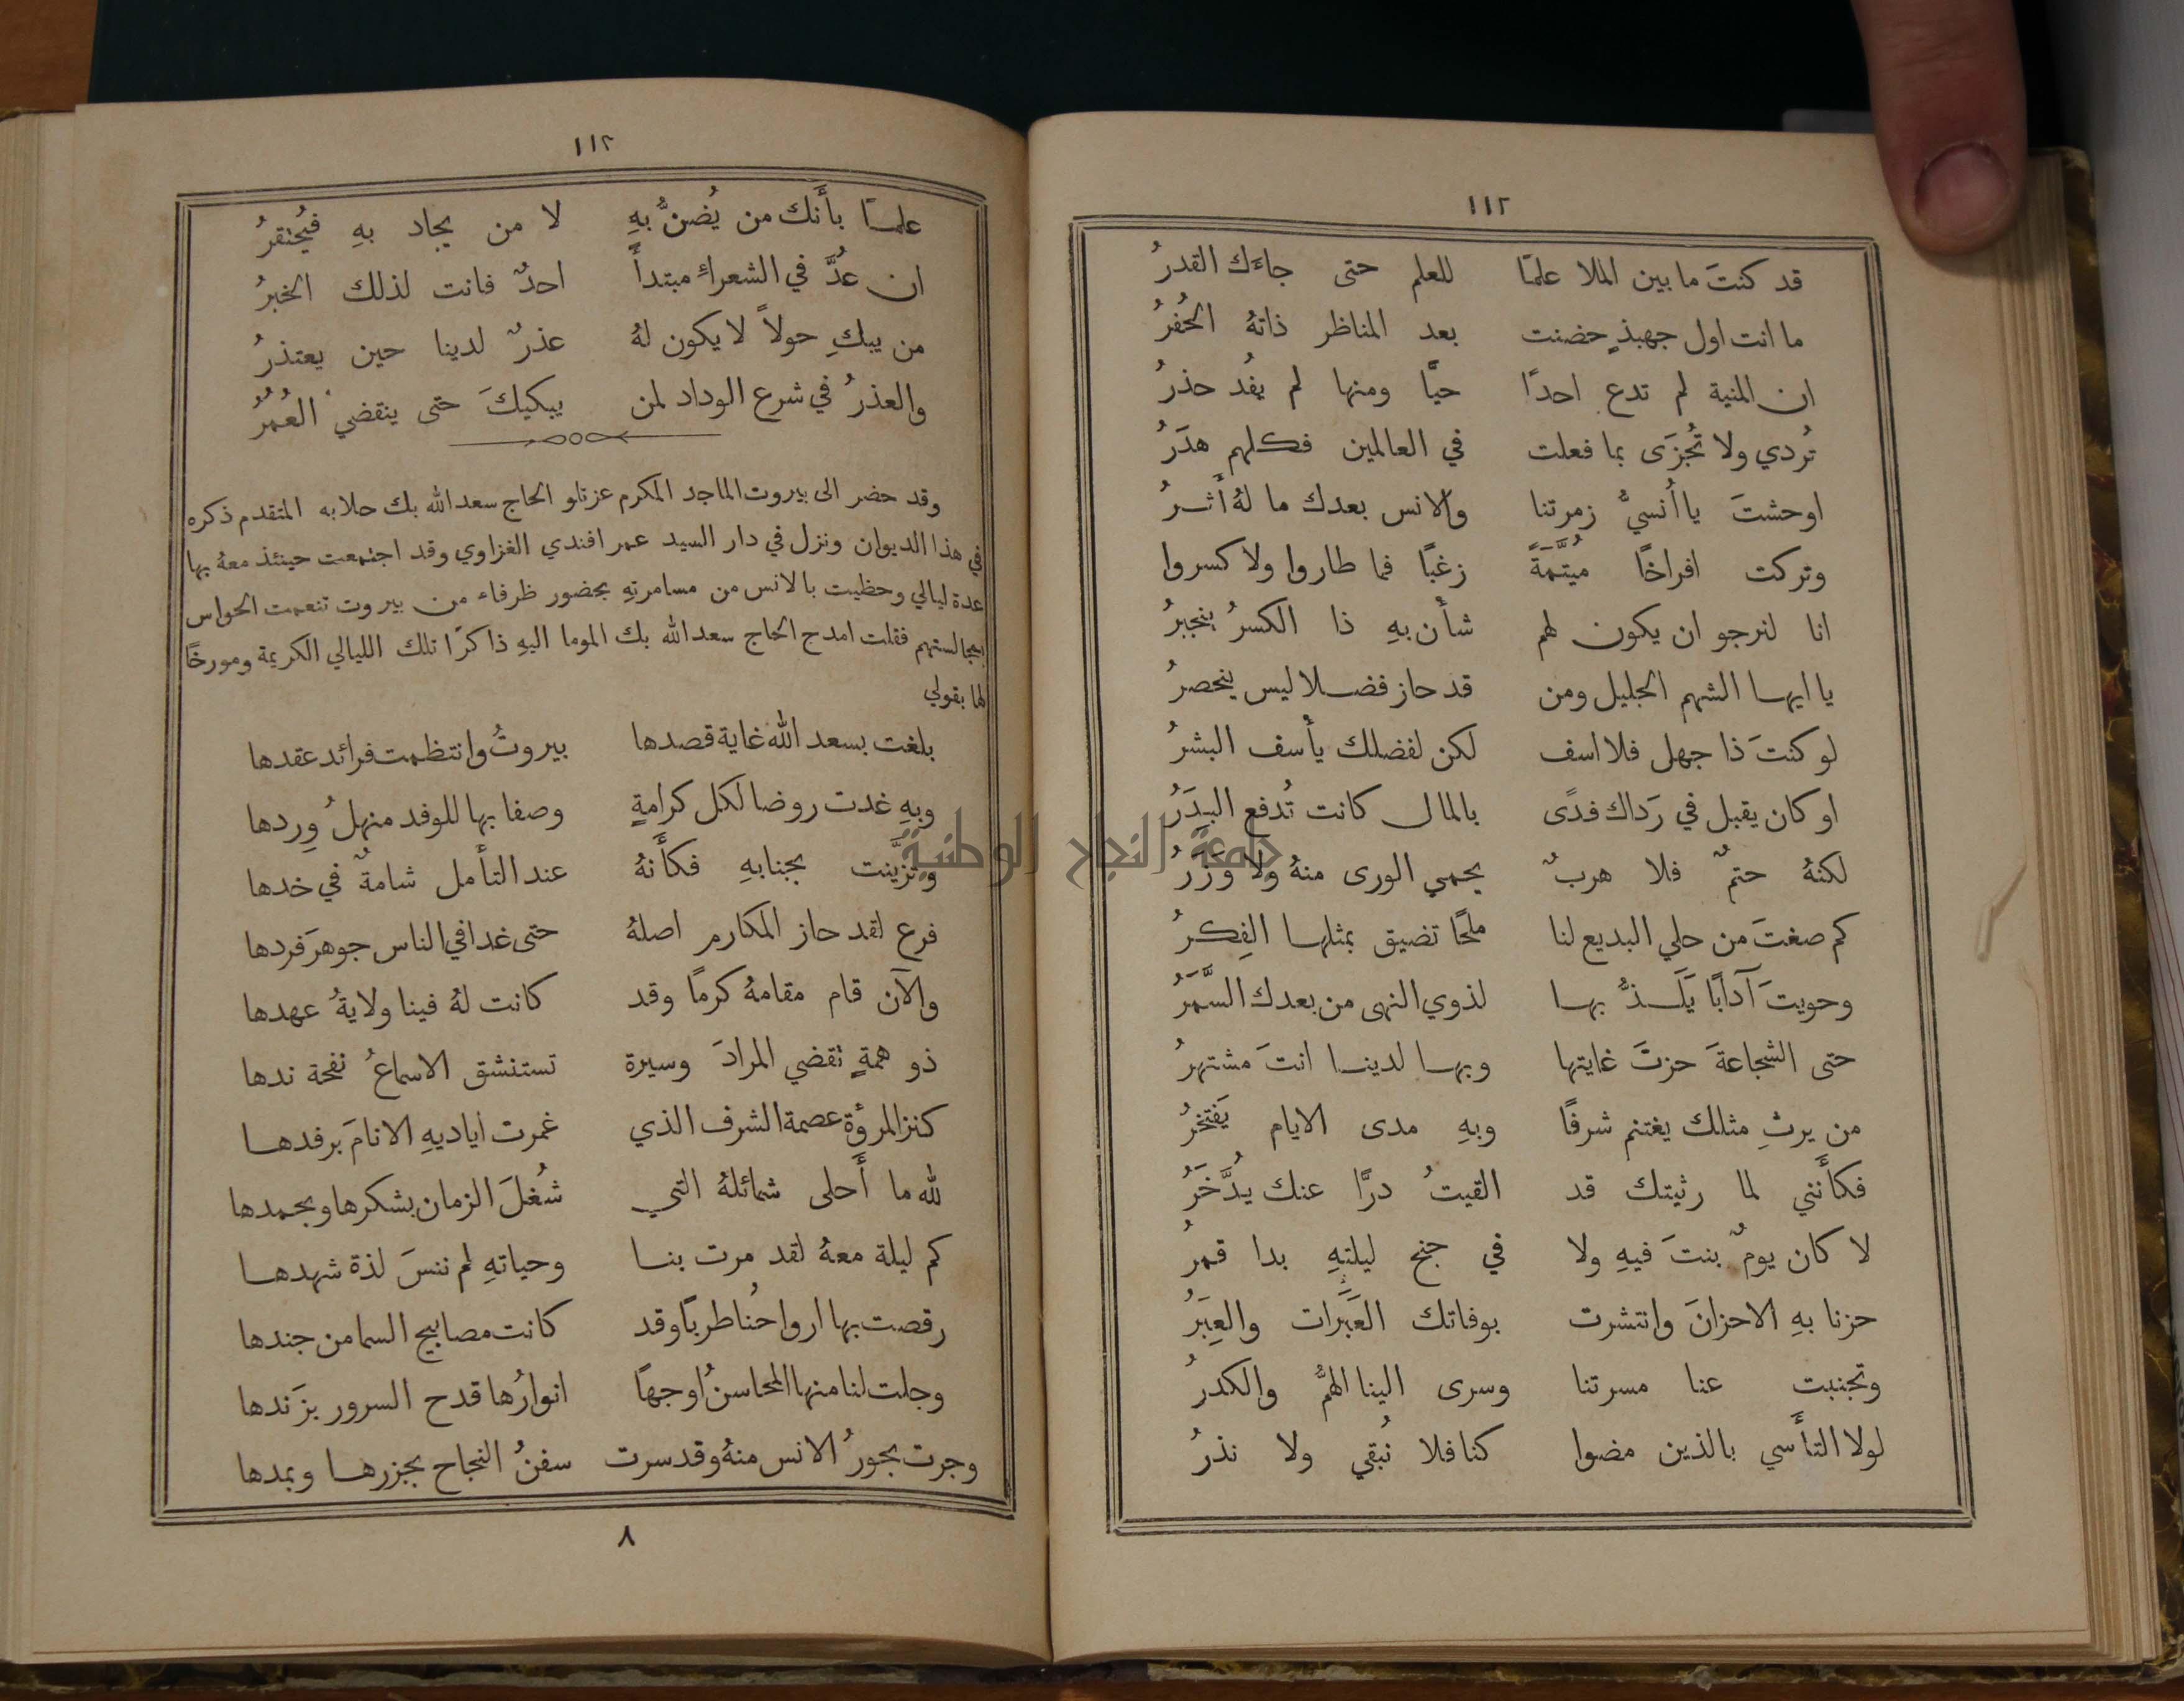 ١١٢
قد كنتَ ما بين الملا علمًا للعلم حتى جاءَك القدرُ
ما انت اول جهبذٍ حضنت بعد المناظر ذاتهُ الحُفَرُ
ان المنية لم تدع احدًا حيًّا ومنها لم يفُد حذرُ
تُردي ولا تُجزَى بما فعلت في العالمين فكلهم هدَرُ
اوحشتَ يا أُنسيُّ زمرتنا والانس بعدك ما لهُ أَثرُ
وتركت افراخًا ميُتَّمَةً زغبًا فما طاروا ولا كسروا
انا لنرجو ان يكون لهم شأن بهِ ذا الكسرُ ينجبرُ
يا ايها الشهم الجليل ومن قد حاز فضلا ليس ينحصرُ
لو كنتَ ذا جهل فلا اسف لكن لفضلك يأسف البشرُ
او كان يقبل في رَداك فدًى بالمال كانت تُدفع البِدَرُ
لكنهُ حتمٌ فلا هربٌ يحمي الورى منهُ ولا وَزَرُ
كم صغتَ من حلي البديع لنا ملحًا تضيق بمثلها الفِكرُ
وحويتَ آدابًا يَلذُّ بها لذوي النهى من بعدك السَّمَرُ
حتى الشجاعةَ حزتَ غايتها وبها لدينا انتَ مشتهرُ
من يرثِ مثلك يغتنم شرفًا وبهِ مدى الايام يَفتخرُ
فكأَنني لما رثيتك قد القيتُ درًّا عنك يُدَّخَرُ
لا كان يومٌ بنتَ فيهِ ولا في جنح ليلتهِ بدا قمرُ
حزنا بهِ الاحزانَ وانتشرت بوفاتك العَبَرات والعِبَرُ
وتجنبت عنا مسرتنا وسرى الينا الهمُّ والكدرُ
لولا التأَسي بالذين مضوا كنا فلا نُبقي ولا نذرُ
١١٣
علمًا بأَنك من يُضنُّ بهِ لا من يجاد بهِ فيُحتقرُ
ان عُدَّ في الشعراءِ مبتدأً احدٌ فانت لذلك الخبرُ
من يبكِ حولاً لا يكون لهُ عذرٌ لدينا حين يعتذرُ
والعذرُ في شرع الوداد لمن يبكيكَ حتى ينقضي العُمُرُ
وقد حضر الى بيروت الماجد المكرم عزتلو الحاج سعد الله بك حلابه المتقدم ذكره
في هذا الديوان ونزل في دار السيد عمر افندي الغزاوي وقد اجتمعت حينئذ معهُ بها
عدة ليالي وحظيت بالانس من مسامرتهِ بحضور ظرفاء من بيروت تنعمت الحواس
بمجالستهم فقلت امدح الحاج سعد الله بك الموما اليهِ ذاكرًا تلك الليالي الكريمة ومورخًا
لها بقولي
بلغت بسعد الله غاية قصدها بيروتُ وانتظمت فرائد عقدها
وبهِ غدت روضا لكل كرامةٍ وصفا بها للوفد منهلُ وِردها
وتزيَّنت بجنابهِ فكأَنهُ عند التأمل شامةٌ في خدها
فرع لقد حاز المكارم اصلهُ حتى غدا في الناس جوهرَ فردها
والآن قام مقامهُ كرمًا وقد كانت لهُ فينا ولايةُ عهدها
ذو همةٍ تقضي المرادَ وسيرة تستنشق الاسماعُ نفحة ندها
كنز المرؤة عصمة الشرف الذي غمرت اياديهِ الانامَ برفدها
لله ما أَحلى شمائلهُ التي شُغلَ الزمان بشكرها وبحمدها
كم ليلة معهُ لقد مرت بنا وحياتهِ لم ننسَ لذة شهدها
رقصت بها ارواحُنا طربًا وقد كانت مصابيح السما من جندها
وجلت لنا منها المحاسنُ اوجهًا انوارُها قدح السرور بزَندها
وجرت بحورُ الانس منهُ وقد سرت سفنُ النجاح بجزرها وبمدها
٨
جامعة النجاح الوطنية